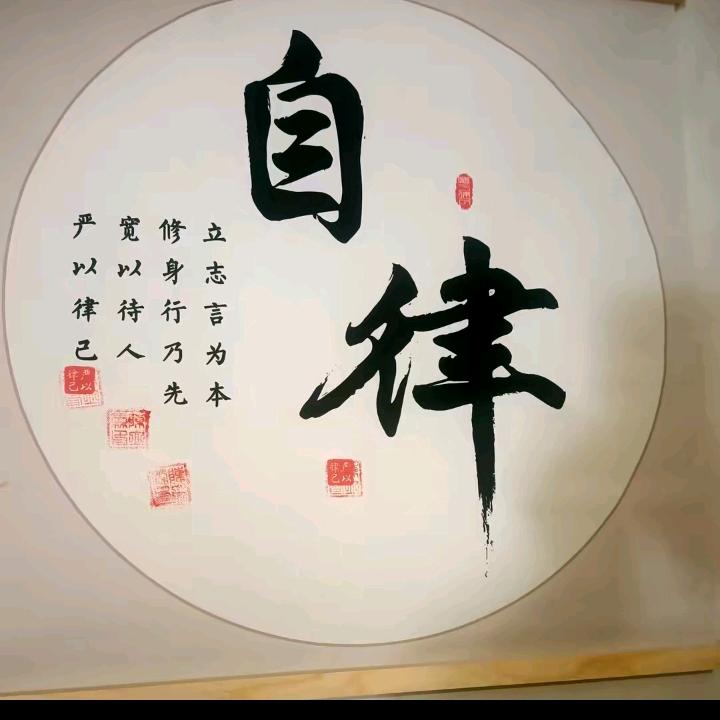 自律
立志言为本
修身行乃先
宽以待人
严以律己
严以律己
严以律己